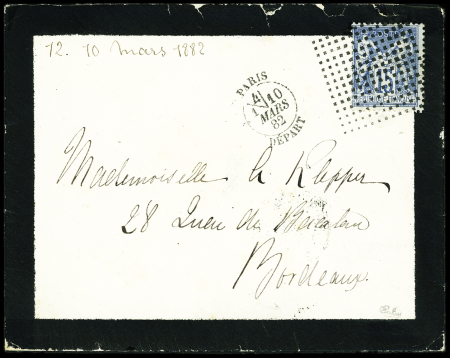 12. 10 mars 1882
PARIS
10
MARS
82
DÉPART
15
Mademoiselle A Klepper
28 Quai de Bacalan
Bordeaux